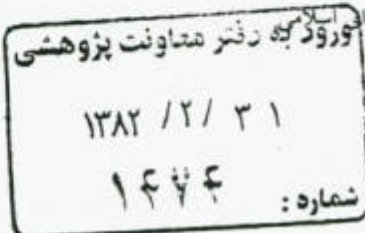 ورود به دفتر معاونت پژوهشی
۱۳۸۲ /۲/ ۳۱
شماره : ۱۴۷۴